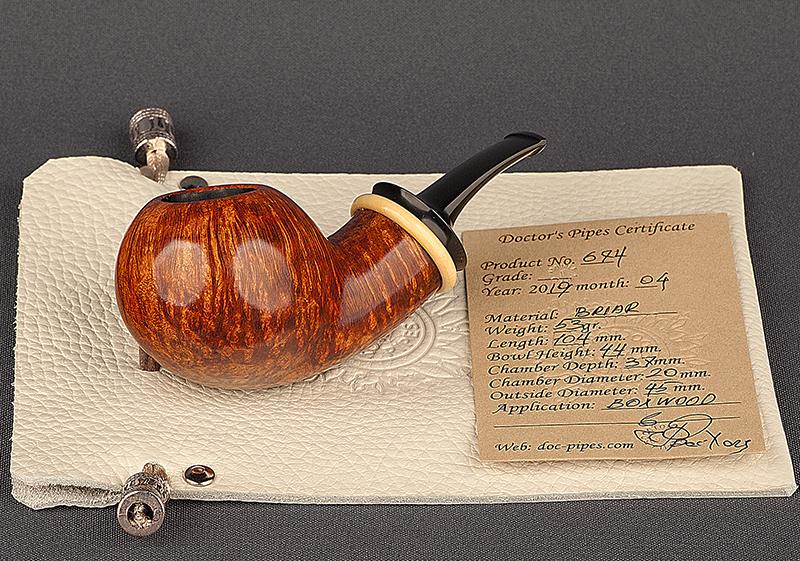 Doctor's Pipes Certificate
Product No. 674
Grade:
Year: 2019 month: 04
Material: BRIAR
Weight: 53gr.
Length: 104 mm.
Bowl Height: 44 mm.
Chamber Depth: 37mm.
Chamber Diameter: 20 mm.
Outside Diameter: 45 mm.
Application: BOXWOOD
Web: doc-pipes.com